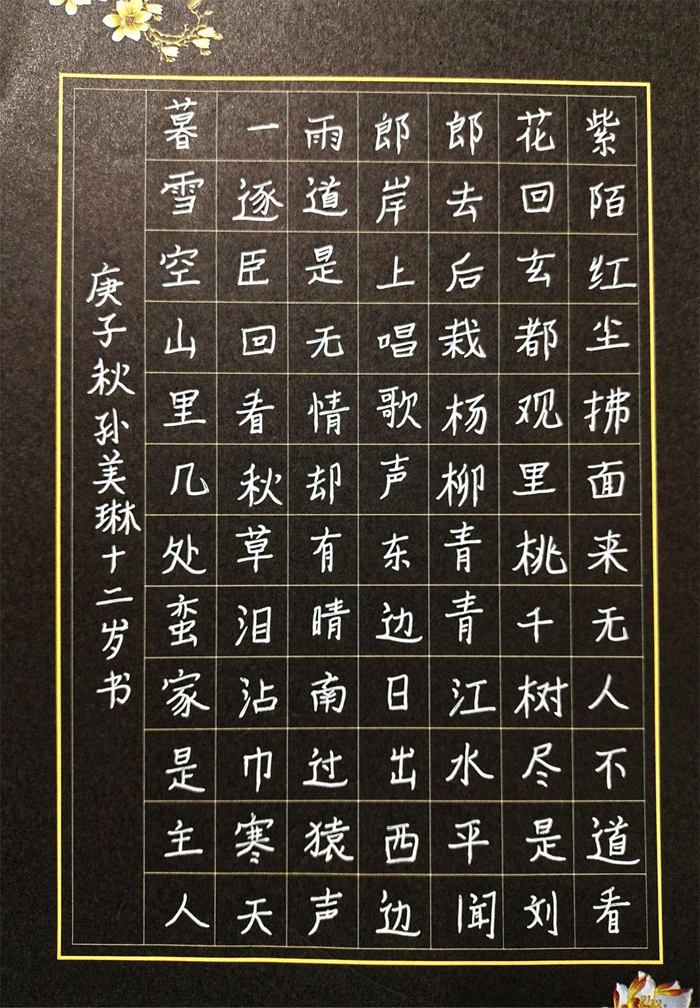 紫陌红尘拂面来无人不道看
花回玄都观里桃千树尽是刘
郎去后栽杨柳青青江水平闻
郎岸上唱歌声东边日出西边
雨道是无情却有晴南过猿声
一逐臣回看秋草泪沾巾寒天
暮雪空山里几处蛮家是主人
庚子秋孙美琳十二岁书